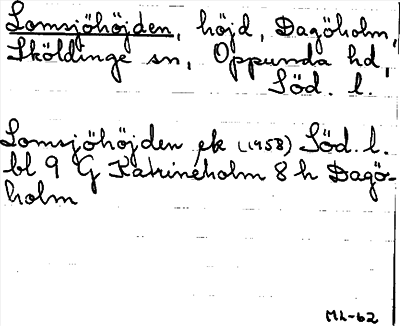 Lomsjöhöjden, höjd, Dagöholm,
Sköldinge sn, Oppunda hd,
Söd. l.
Lomsjöhöjden ek (1958) Söd. l.
bl 9 G Katrineholm 8 h Dagö-
holm
ML-62